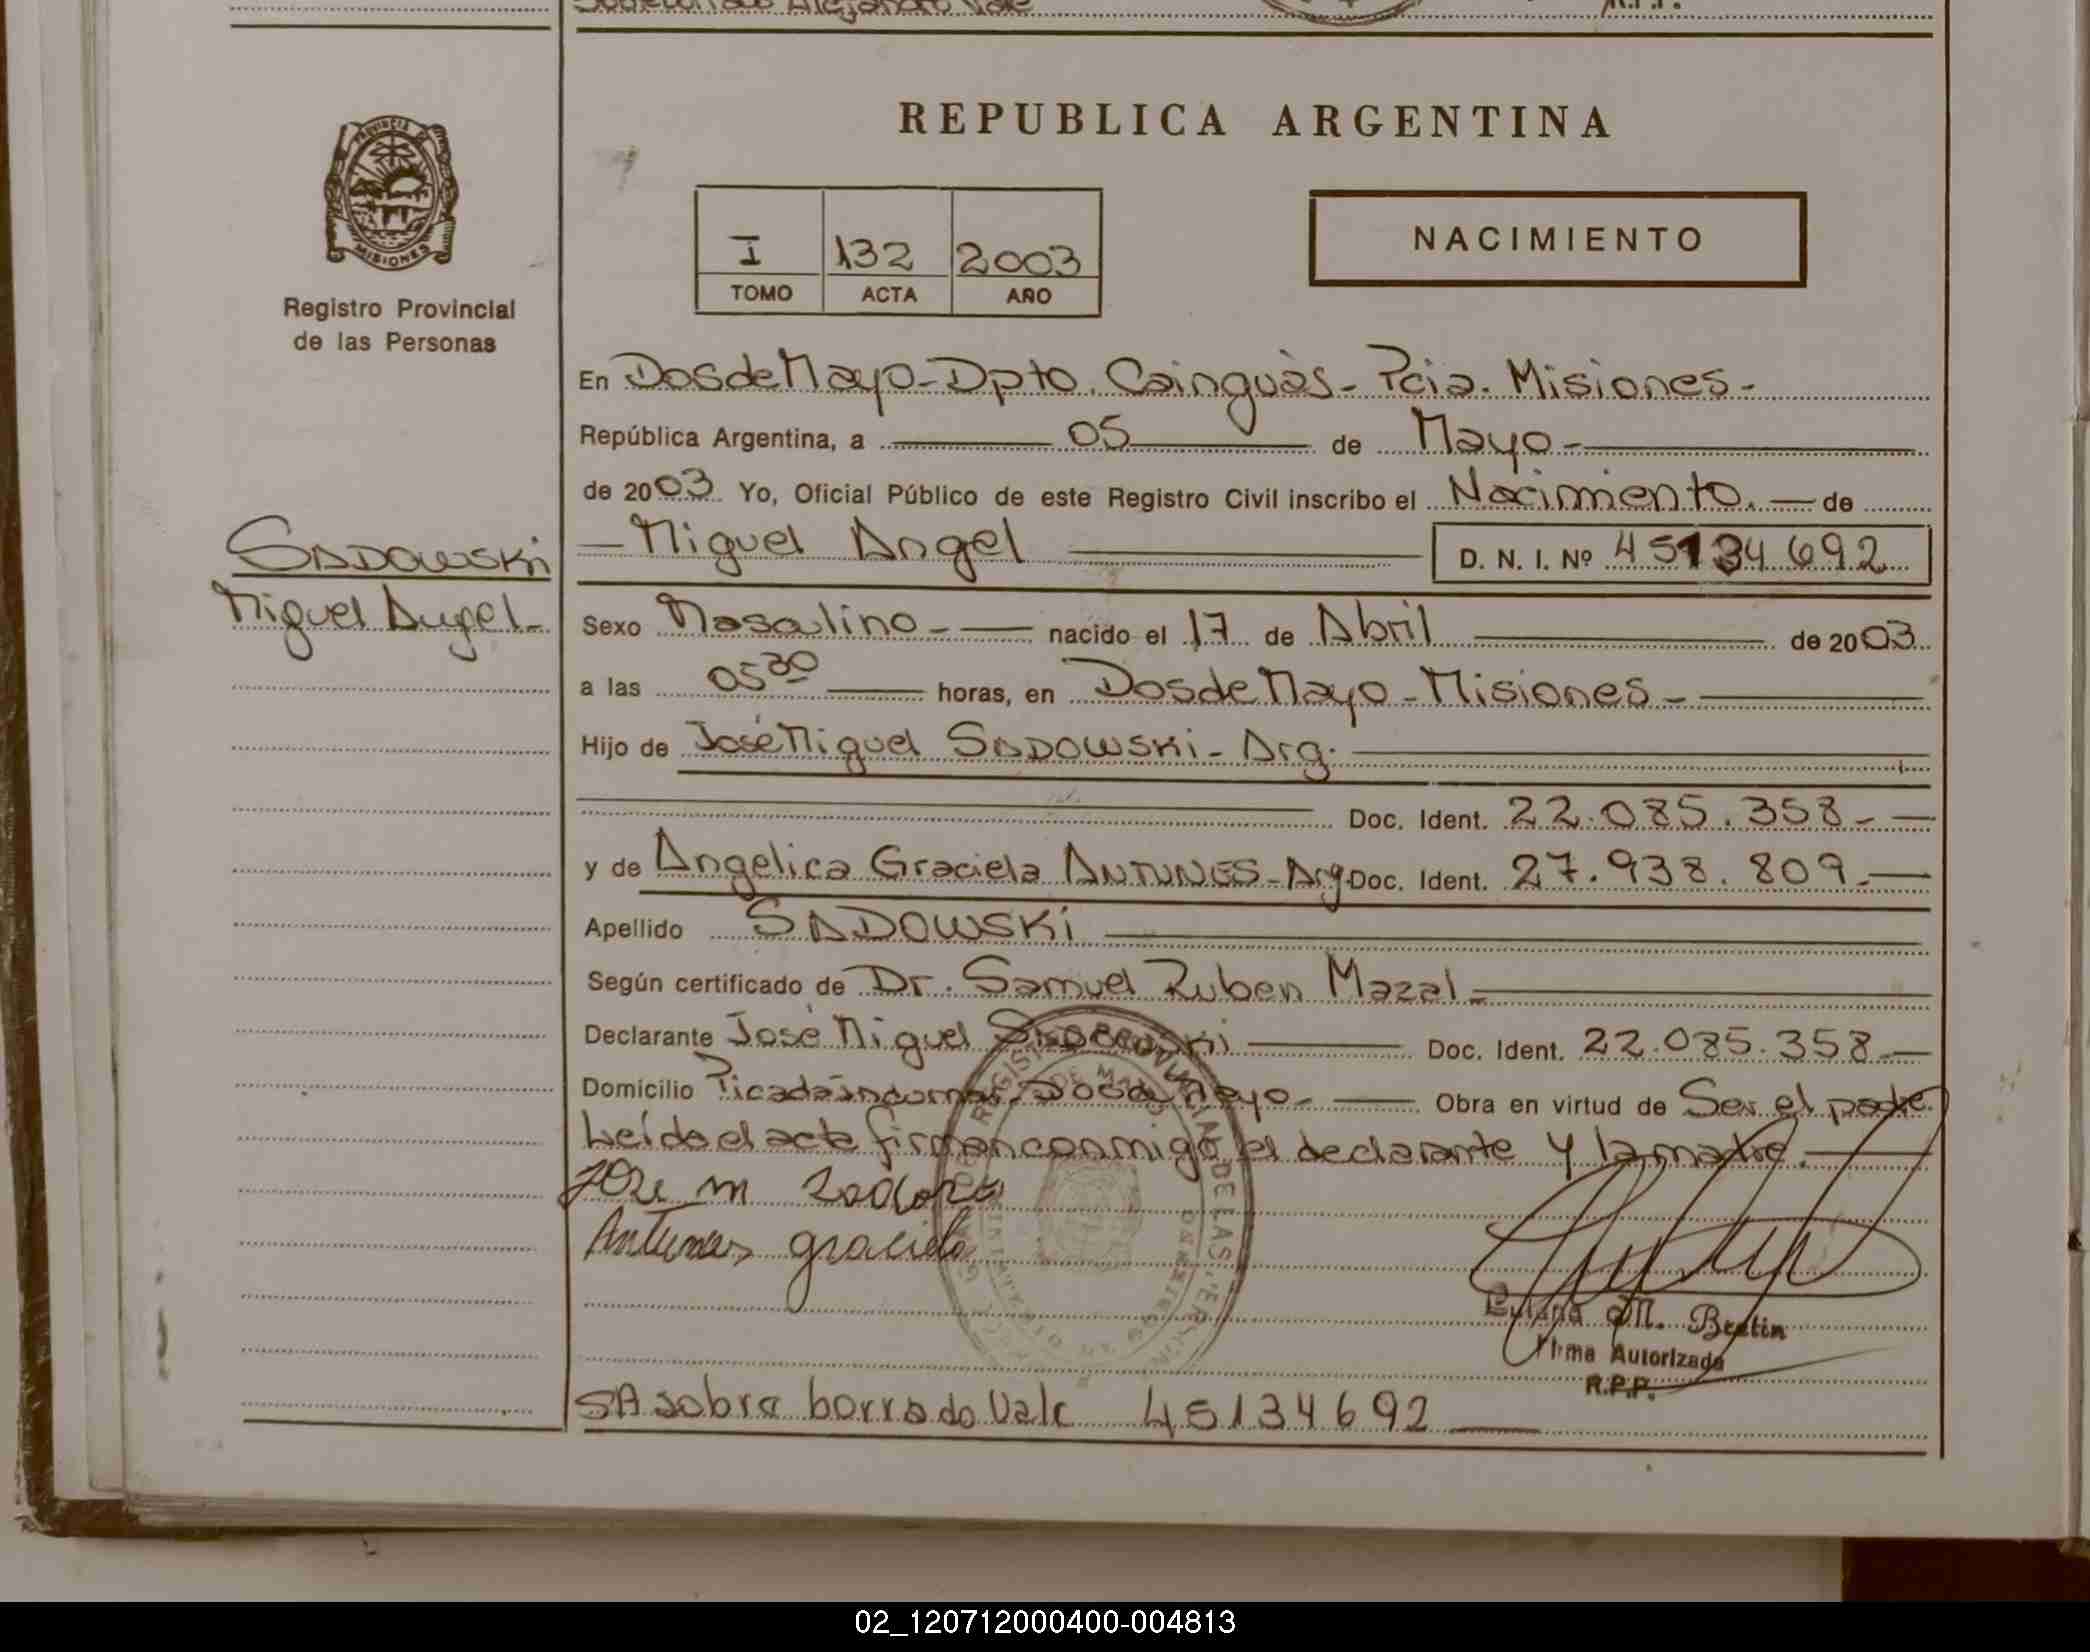 REPUBLICA ARGENTINA
PROVINCIA DE
MISIONES
Registro Provincial
de las Personas
I 132 2003
TOMO ACTA AÑO
NACIMIENTO
En Dos de Mayo - Dpto. Cainguàs - Pcia. Misiones -
República Argentina, a 05 de Mayo -
de 2003 Yo, Oficial Público de este Registro Civil inscribo el Nacimiento. — de
Miguel Angel
D. N. I. Nº 45134692
SADOWSKi
Miguel Angel -
Sexo Masculino - nacido el 17 de Abril de 2003
a las 05 30 horas, en Dos de Mayo - Misiones -
Hijo de José Miguel SADOWSKi - Arg.
Doc. Ident. 22.085.358 -
y de Angelica Graciela ANTUNES - Arg. Doc. Ident. 27.938.809 -
Apellido SADOWSKi
Según certificado de Dr. Samuel Ruben Mazal -
Declarante José Miguel SADOWSKi Doc. Ident. 22.085.358 -
Domicilio Picada - Dos de Mayo - Obra en virtud de Ser el padre.
Leído el acta firman conmigo el declarante y la madre.
Jose m
Antunes graciela
M. Bertin
Firma Autorizada
R.P.P.
SA sobre borrado Vale 45134692
02_120712000400-004813